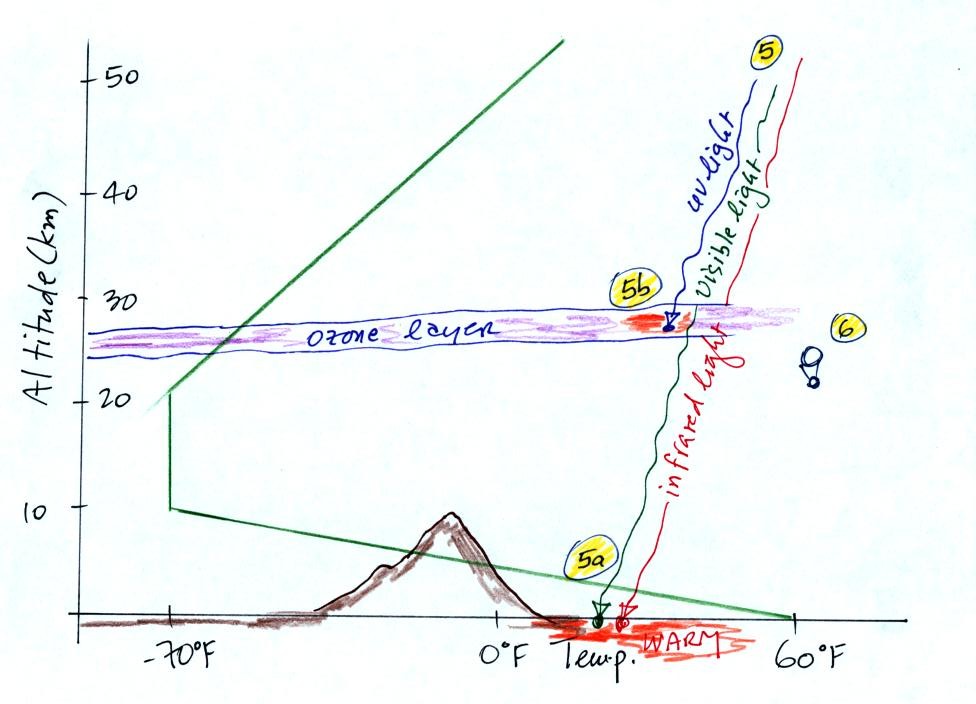 5
50
uv light
visible light
40
Altitude (km)
30
5b
ozone layer
6
20
infrared light
10
5a
WARM
-70°F
0°F
Temp.
60°F